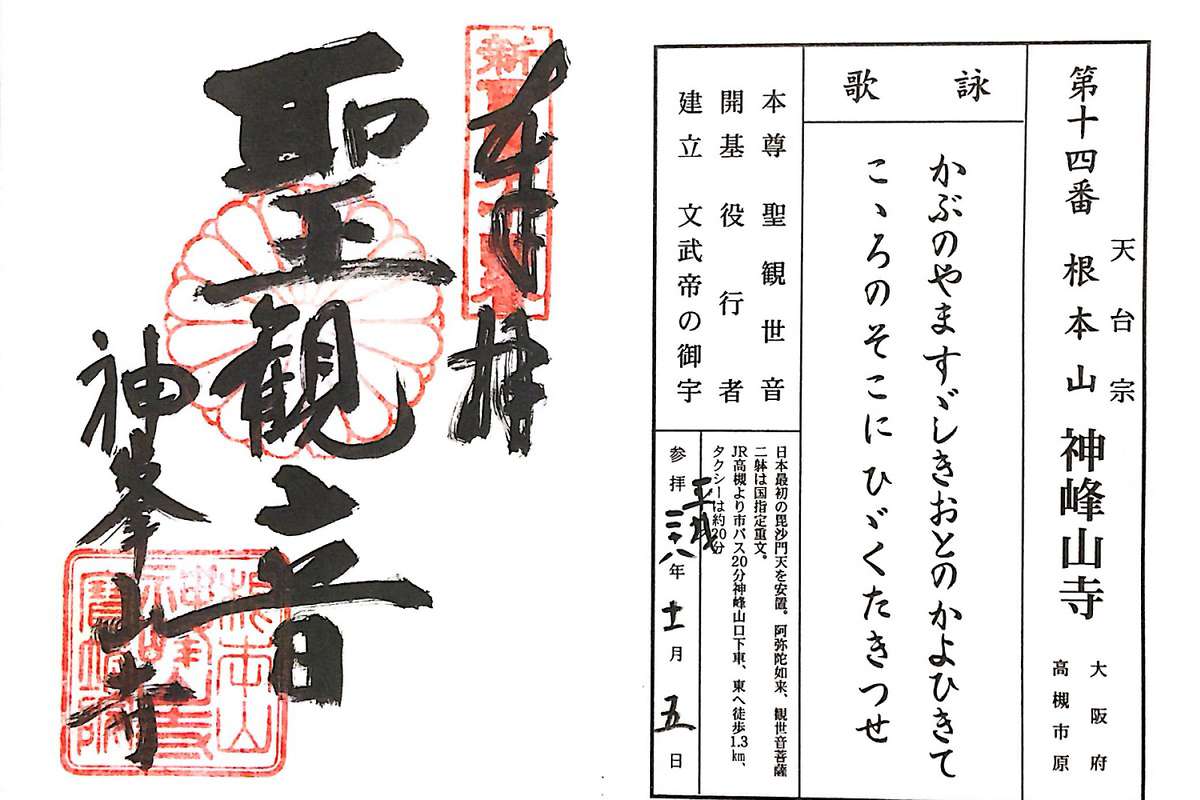 天台宗
第十四番 根本山 神峰山寺
大阪府
高槻市原
詠歌
かぶのやますゞしきおとのかよひきて
こゝろのそこにひゞくたきつせ
本尊 聖観世音
開基 役行者
建立 文武帝の御宇
日本最初の毘沙門天を安置。阿弥陀如来、観世音菩薩
二躰は国指定重文。
JR高槻より市バス20分神峰山口下車、東へ徒歩1.3㎞、
タクシーは約20分
平成
参拝二十八年十一月五日
奉拝
聖観音
神峯山寺